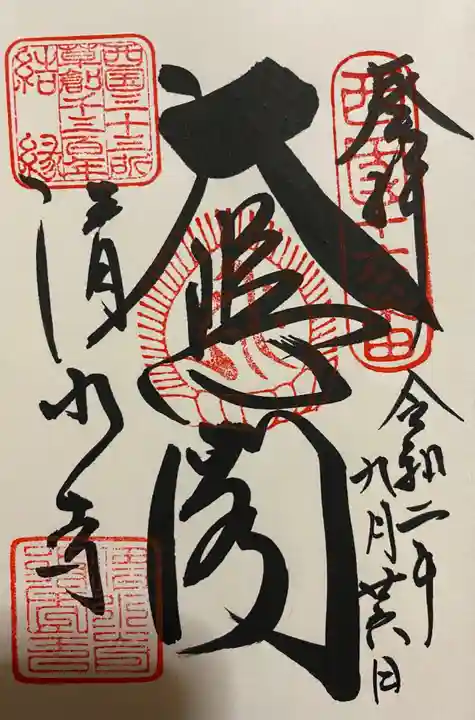 奉拝
西国十六番
令和二年
九月廿六日
大悲閣
西国三十三所
草創千三百年
結縁
清水寺